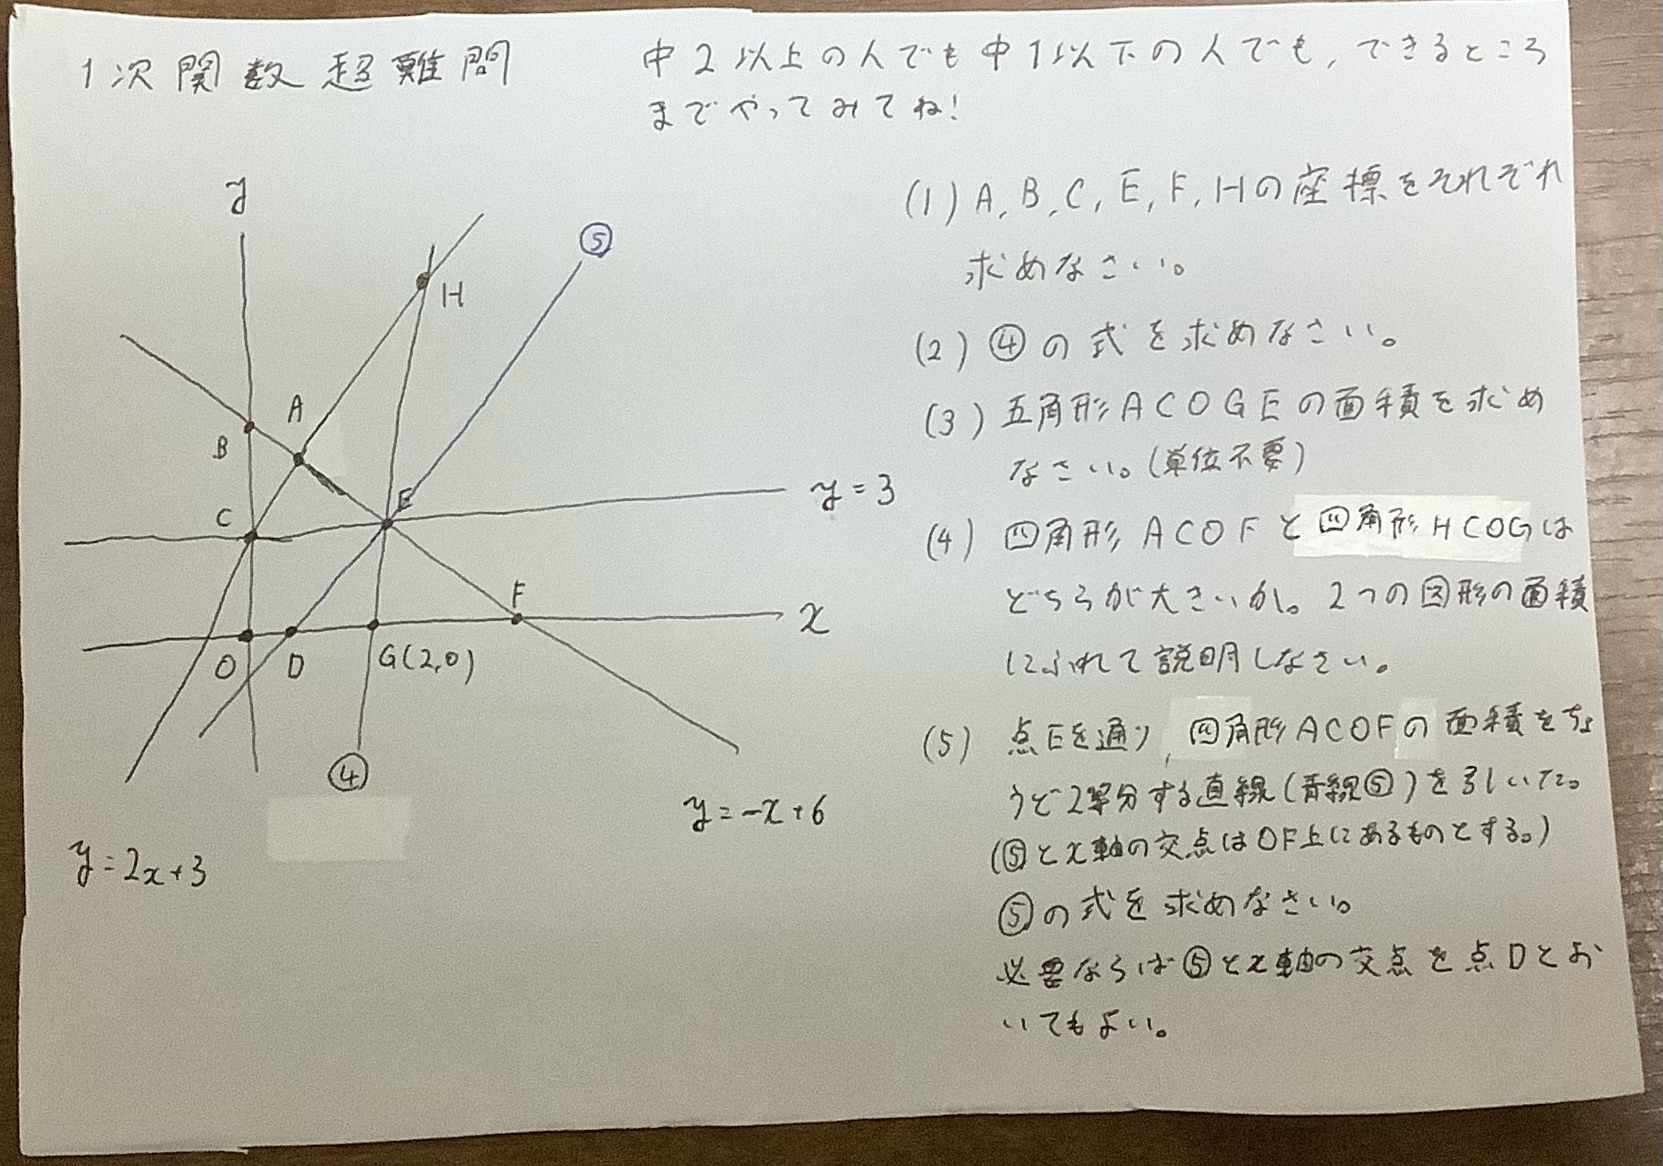 1次関数超難問
中2以上の人でも中1以下の人でも,できるところ
までやってみてね!
y
⑤
H
A
B
C
E
y=3
F
x
O
D
G(2,0)
④
y=-x+6
y=2x+3
(1) A,B,C,E,F,Hの座標をそれぞれ
求めなさい。
(2) ④の式を求めなさい。
(3) 五角形ACOGEの面積を求め
なさい。(単位不要)
(4) 四角形ACOFと四角形HCOGは
どちらが大きいか。2つの図形の面積
にふれて説明しなさい。
(5) 点Eを通り,四角形ACOFの面積をちょ
うど2等分する直線(青線⑤)を引いた。
(⑤とx軸の交点はOF上にあるものとする。)
⑤の式を求めなさい。
必要ならば⑤とx軸の交点を点Dとお
いてもよい。